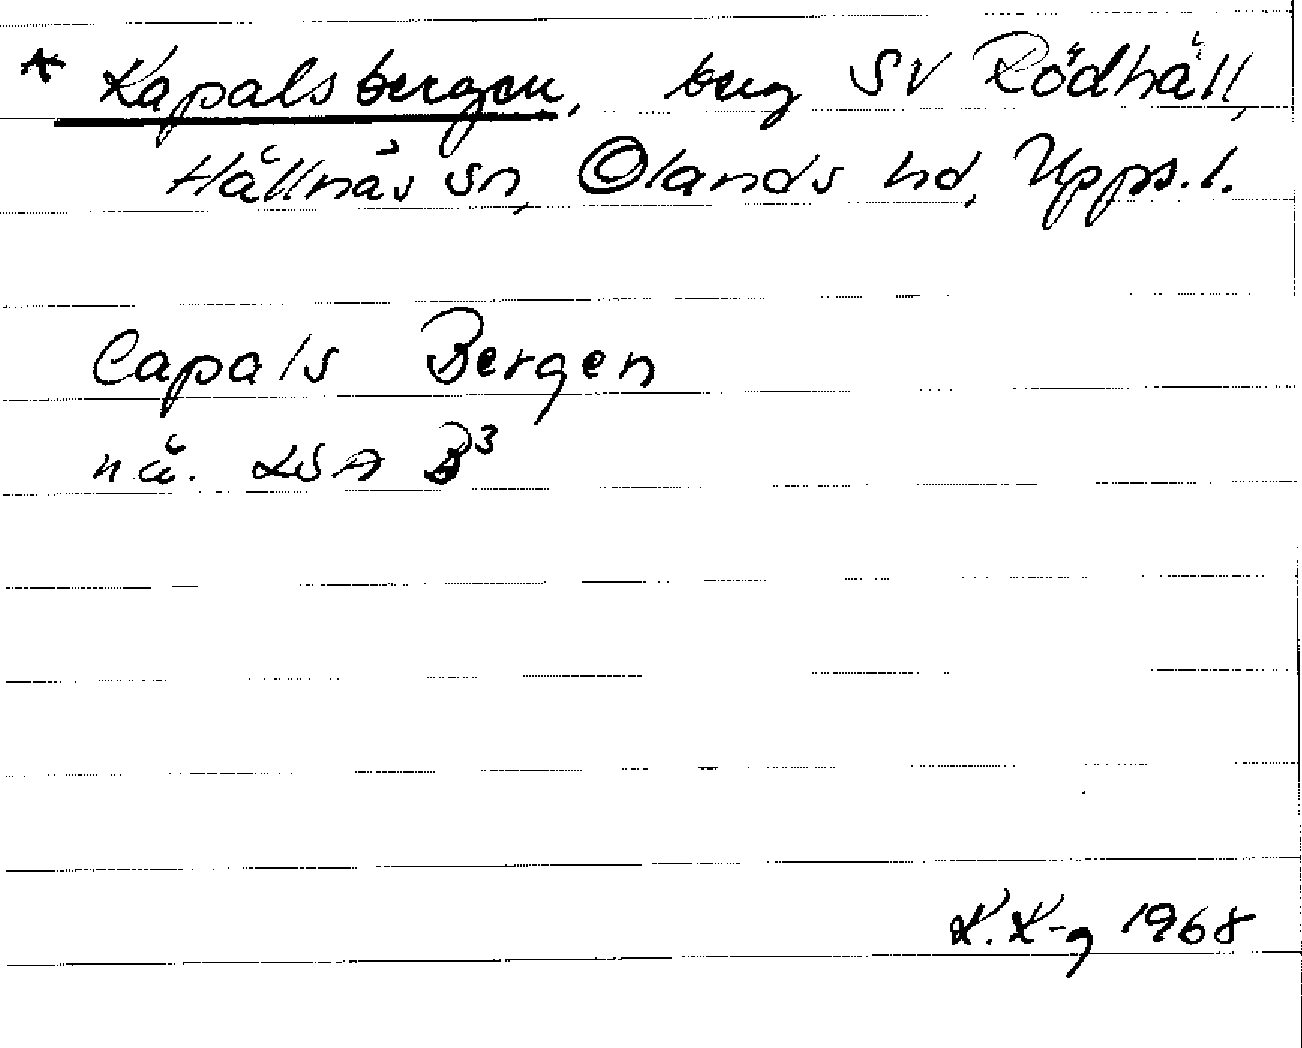 * Kapalsbergen, berg SV Rödhäll,
Hållnäs sn, Olands hd, Upps. l.
Capals Bergen
nä. LSA B³
K. K-g 1968